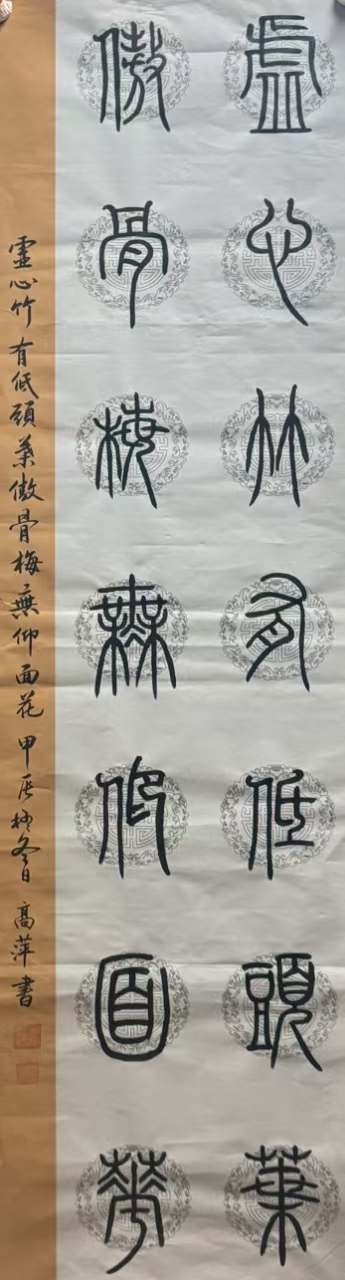 虛心竹有低頭葉
傲骨梅無仰面花
靈心竹有低頭葉傲骨梅無仰面花 甲辰 冬日 高萍書